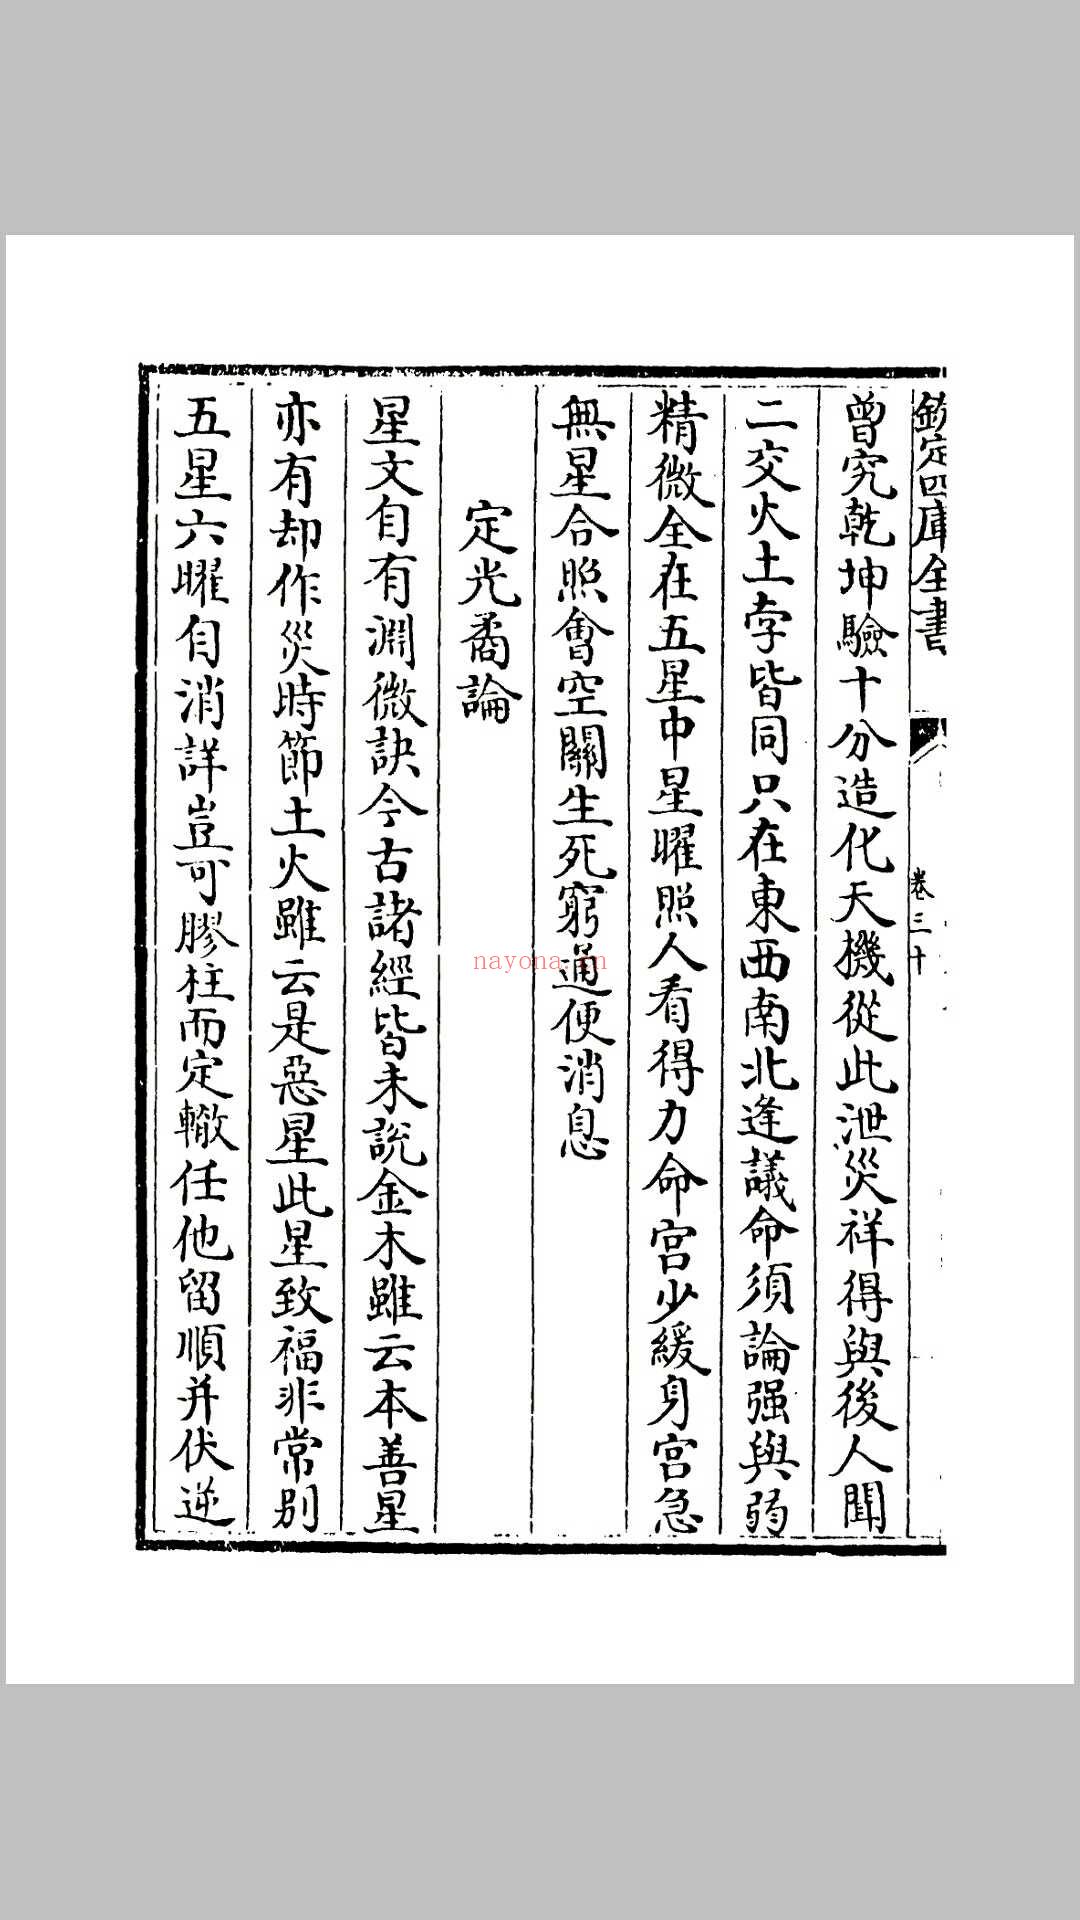 欽定四庫全書
卷三十
曾究乾坤驗十分造化天機從此泄災祥得與後人聞
二交火土孛皆同只在東西南北逢議命須論强與弱
精微全在五星中星曜照人看得力命宫少緩身宫急
無星合照會空關生死窮通便消息
定光矞論
星文自有淵微訣今古諸經皆未說金木雖云本善星
亦有却作災時節土火雖云是惡星此星致福非常别
五星六曜自消詳豈可膠柱而定轍任他留順并伏逆
nayona.cn